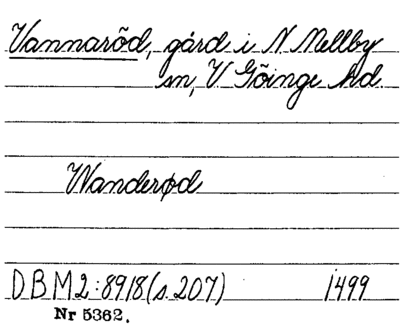 Vannaröd, gård i N Mellby
sn, V Göinge hd.
Wanderød
DBM2:8918(s. 207) 1499
Nr 5362.